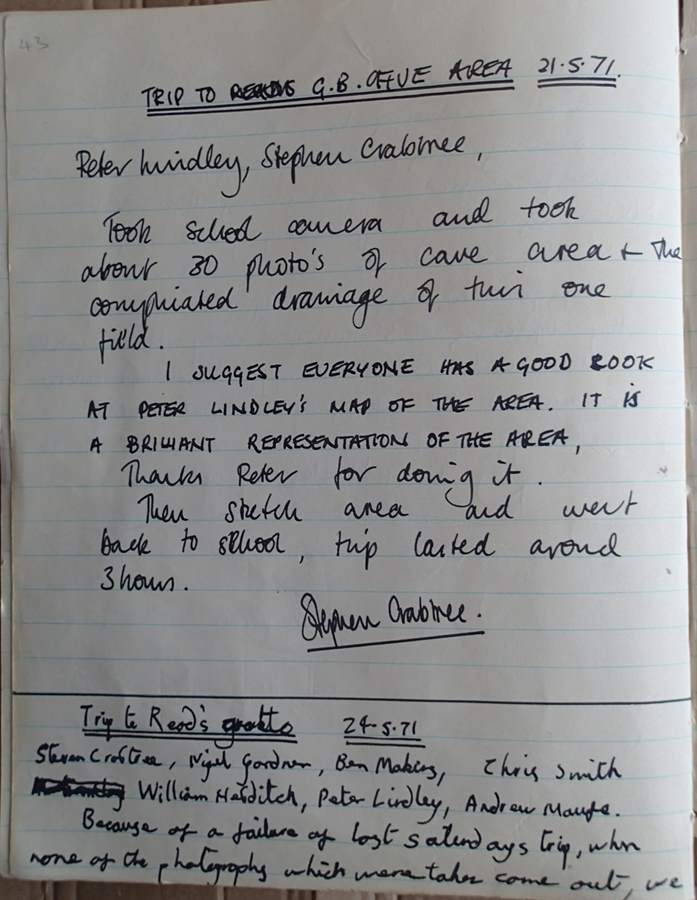 43
TRIP TO G.B. OFFUE AREA 21.5.71.
Peter Lindley, Stephen Crabtree,
Took school camera and took
about 30 photo's of cave area + the
compliated drainage of this one
field.
I SUGGEST EVERYONE HAS A GOOD LOOK
AT PETER LINDLEY'S MAP OF THE AREA. IT IS
A BRILLIANT REPRESENTATION OF THE AREA,
Thanks Peter for doing it.
Then sketch area and went
back to school, trip lasted around
3 hours.
Stephen Crabtree.
Trip to Read's grotto 24-5.71
Steven Crabtree, Nigel Gardner, Ben Makins, Chris Smith
William Hafditch, Peter Lindley, Andrew
Because of a failure of last saturdays trip, when
none of the photographs which were taken come out, we